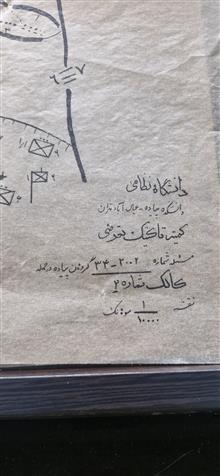 ۶ = ۷
۱/۱
۲
۱
۶
دانشگاه نظامی
دانشکده پیاده - عباس آباد تهران
کمیته تاکتیک تعرضی
مسئله شماره ۲۰۰۲-۳۴ گروهان پیاده در حمله
کالک شماره ۲
نقشه ۱/۱۰۰۰۰